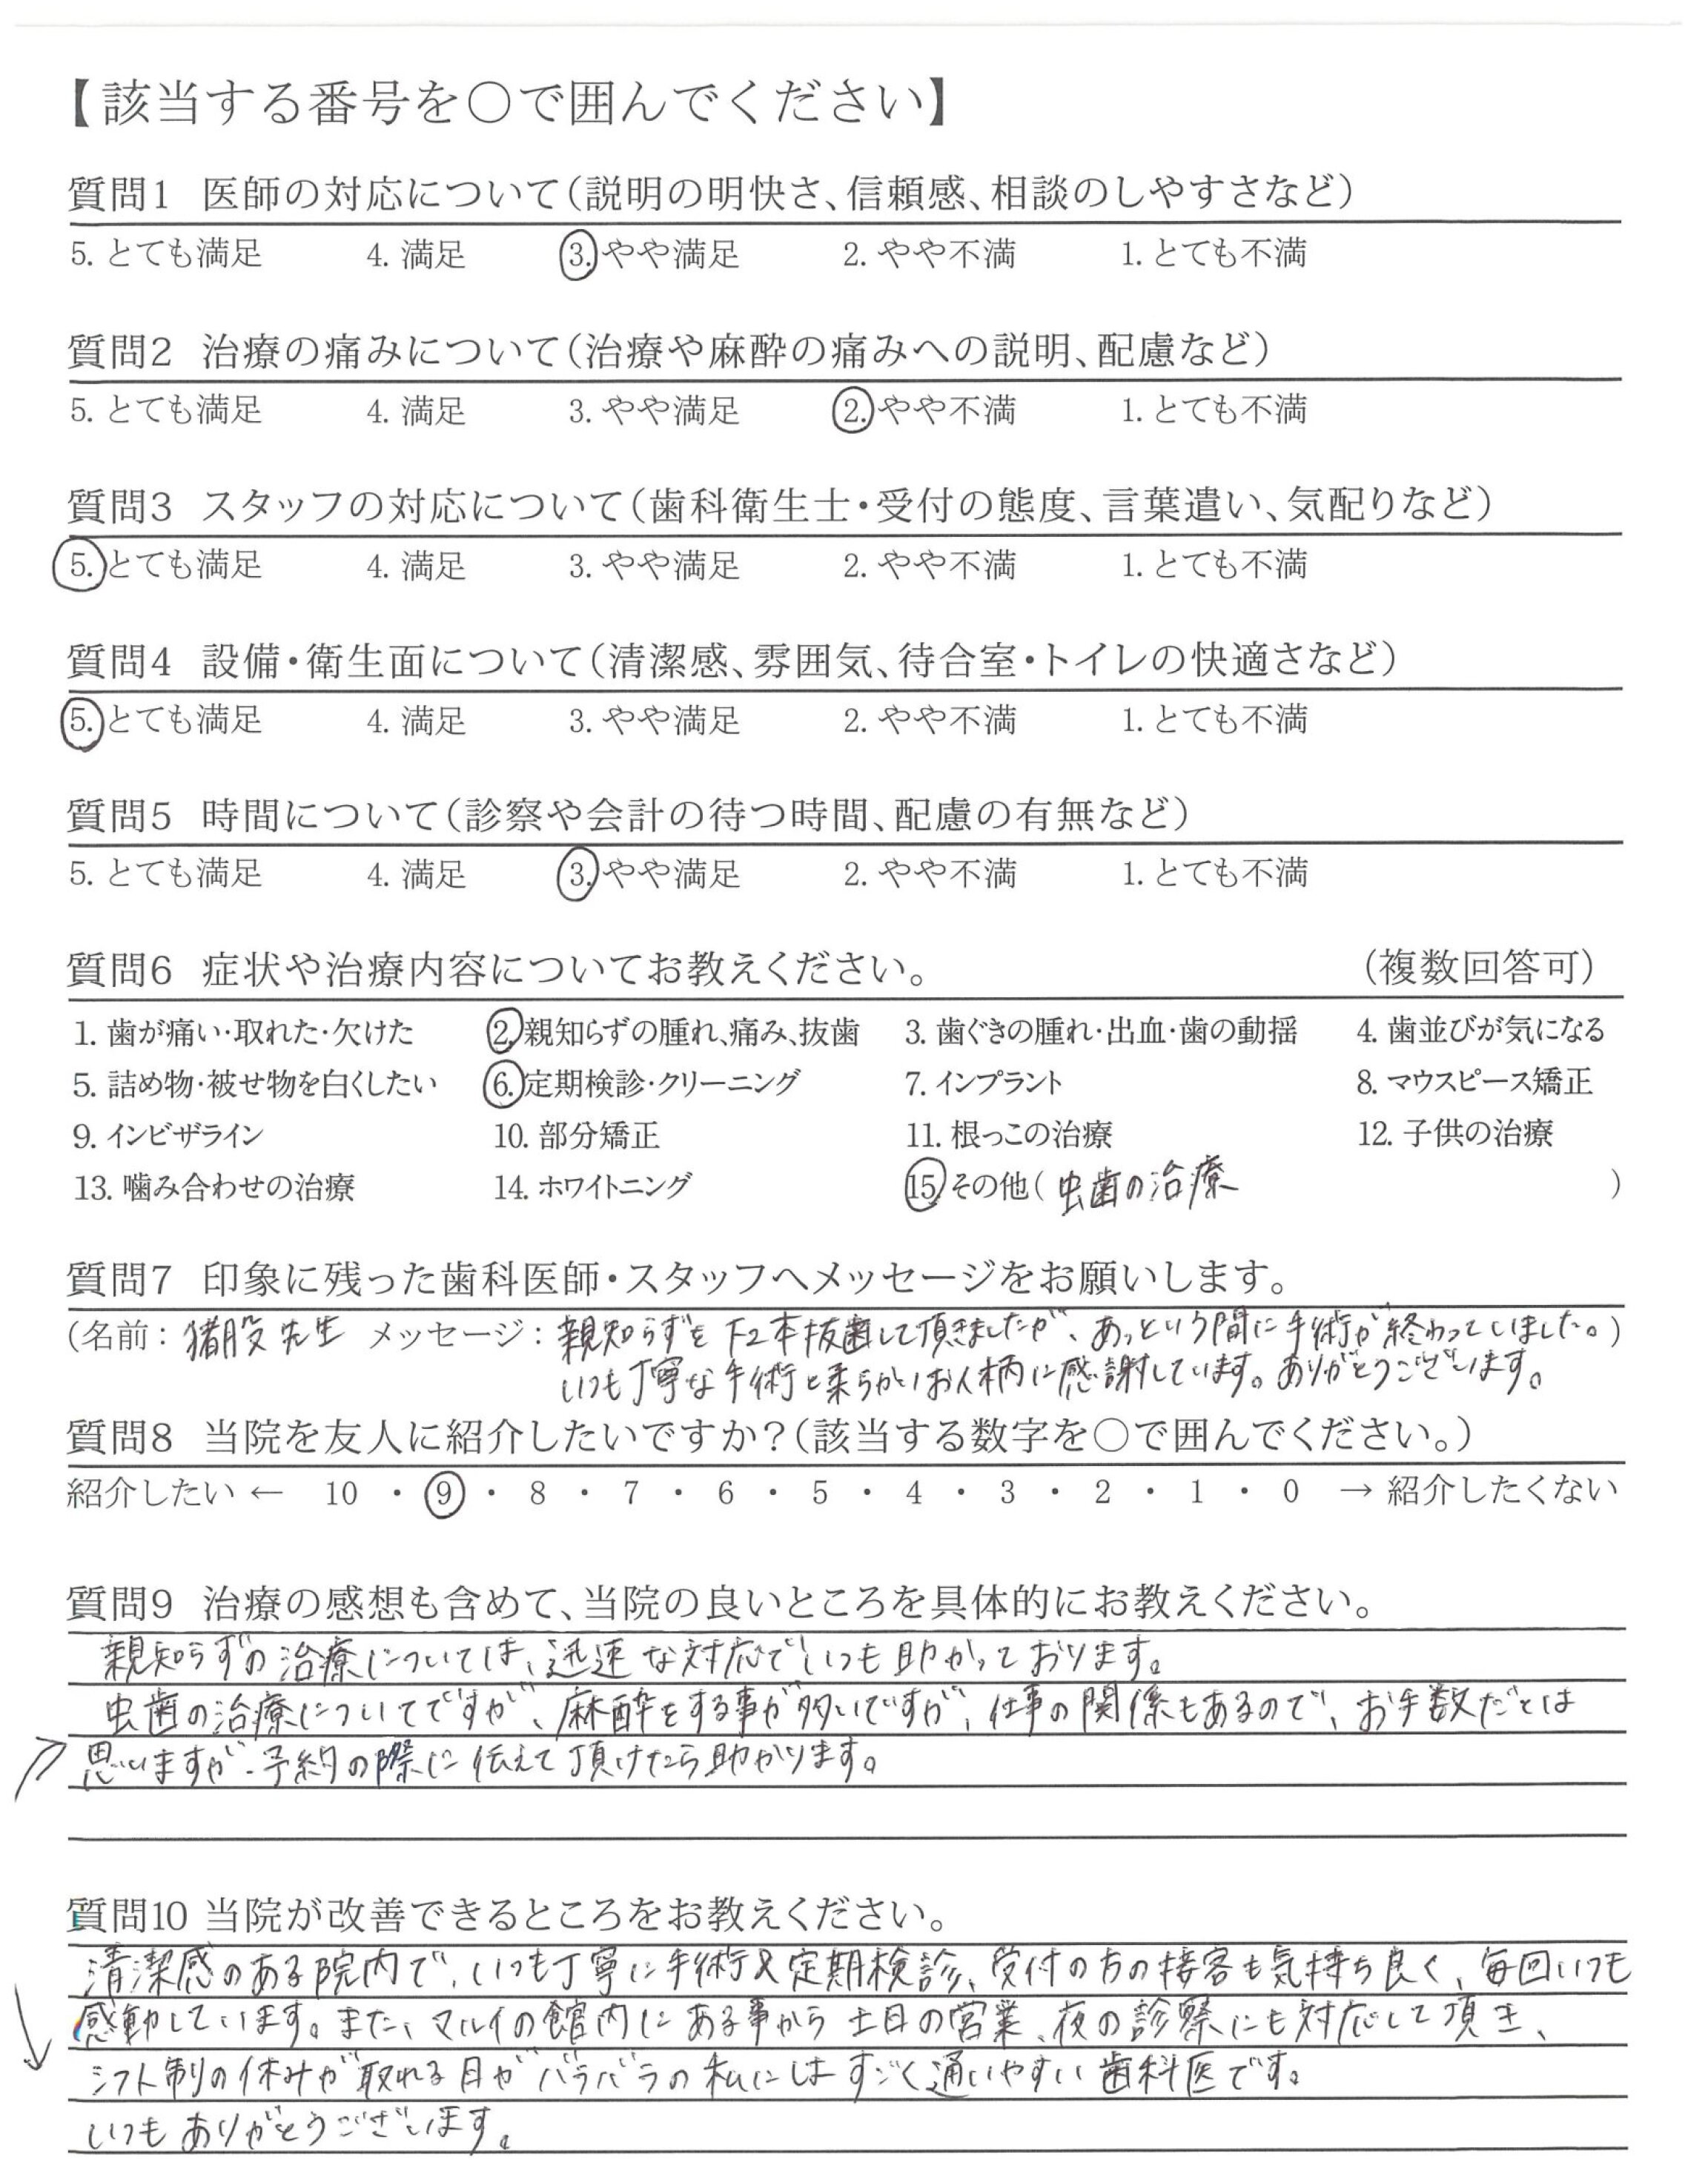 【該当する番号を○で囲んでください】
質問1 医師の対応について（説明の明快さ、信頼感、相談のしやすさなど）
5. とても満足 4. 満足 3. やや満足 2. やや不満 1. とても不満
質問2 治療の痛みについて（治療や麻酔の痛みへの説明、配慮など）
5. とても満足 4. 満足 3. やや満足 2. やや不満 1. とても不満
質問3 スタッフの対応について（歯科衛生士・受付の態度、言葉遣い、気配りなど）
5. とても満足 4. 満足 3. やや満足 2. やや不満 1. とても不満
質問4 設備・衛生面について（清潔感、雰囲気、待合室・トイレの快適さなど）
5. とても満足 4. 満足 3. やや満足 2. やや不満 1. とても不満
質問5 時間について（診察や会計の待つ時間、配慮の有無など）
5. とても満足 4. 満足 3. やや満足 2. やや不満 1. とても不満
質問6 症状や治療内容についてお教えください。 （複数回答可）
1. 歯が痛い・取れた・欠けた 2. 親知らずの腫れ、痛み、抜歯 3. 歯ぐきの腫れ・出血・歯の動揺 4. 歯並びが気になる
5. 詰め物・被せ物を白くしたい 6. 定期検診・クリーニング 7. インプラント 8. マウスピース矯正
9. インビザライン 10. 部分矯正 11. 根っこの治療 12. 子供の治療
13. 噛み合わせの治療 14. ホワイトニング 15. その他（ 虫歯の治療 ）
質問7 印象に残った歯科医師・スタッフへメッセージをお願いします。
（名前： 猪股先生 メッセージ： 親知らずを下2本抜歯して頂きましたが、あっという間に手術が終わっていました。）
いつも丁寧な手術と柔らかいお人柄に感謝しています。ありがとうございます。
質問8 当院を友人に紹介したいですか？（該当する数字を○で囲んでください。）
紹介したい ← 10 ・ 9 ・ 8 ・ 7 ・ 6 ・ 5 ・ 4 ・ 3 ・ 2 ・ 1 ・ 0 → 紹介したくない
質問9 治療の感想も含めて、当院の良いところを具体的にお教えください。
親知らずの治療については、迅速な対応でいつも助かっております。
虫歯の治療についてですが、麻酔をする事が多いですが、仕事の関係もあるので、お手数だとは
思いますが、予約の際に伝えて頂けたら助かります。
質問10 当院が改善できるところをお教えください。
清潔感のある院内で、いつも丁寧に手術&定期検診、受付の方の接客も気持ち良く、毎回いつも
感動しています。また、マルイの館内にある事から土日の営業、夜の診察にも対応して頂き、
シフト制の休みが取れる日がバラバラの私にはすごく通いやすい歯科医です。
いつもありがとうございます。